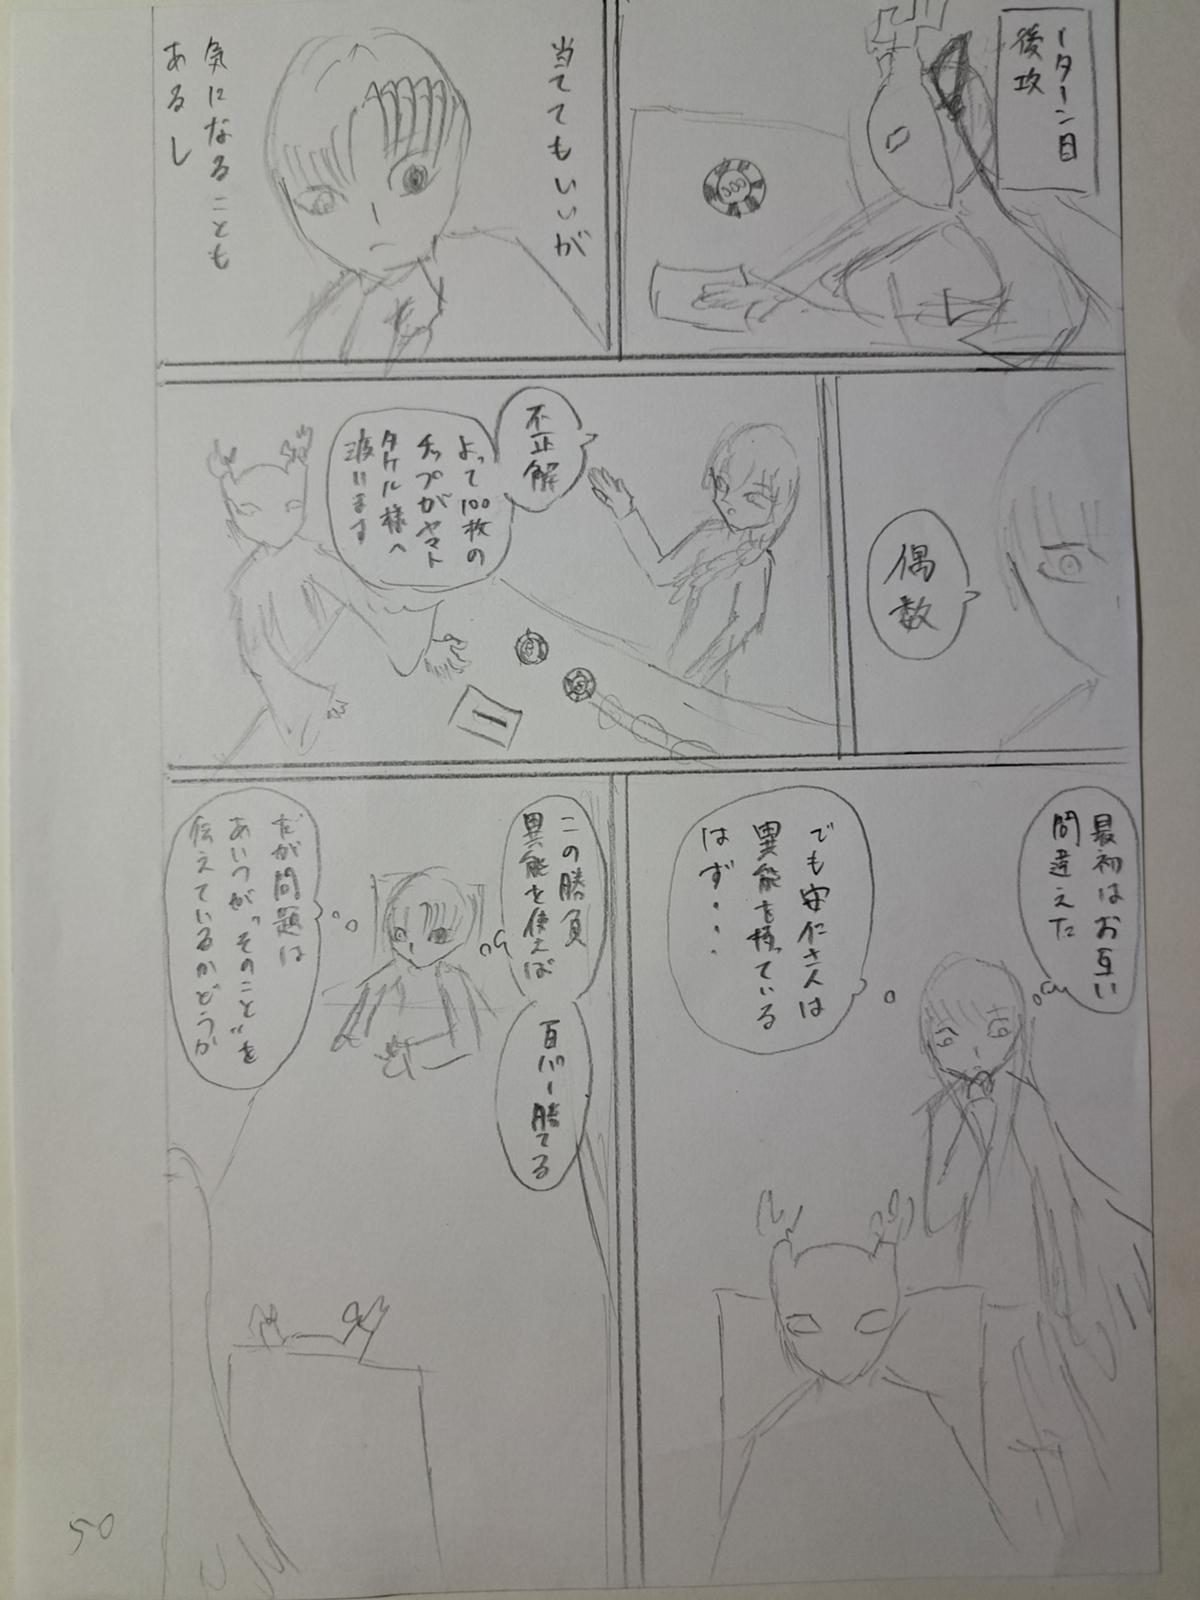 1ターン目
後攻
当ててもいいが
気になることも
あるし
偶数
不正解
よって100枚の
チップがヤマト
タケル様へ
渡ります
最初はお互い
間違えた
でも安仁さんは
異能を持っている
はず・・・
この勝負
異能を使えば
百パー勝てる
だが問題は
あいつが“そのこと”を
伝えているかどうか
50